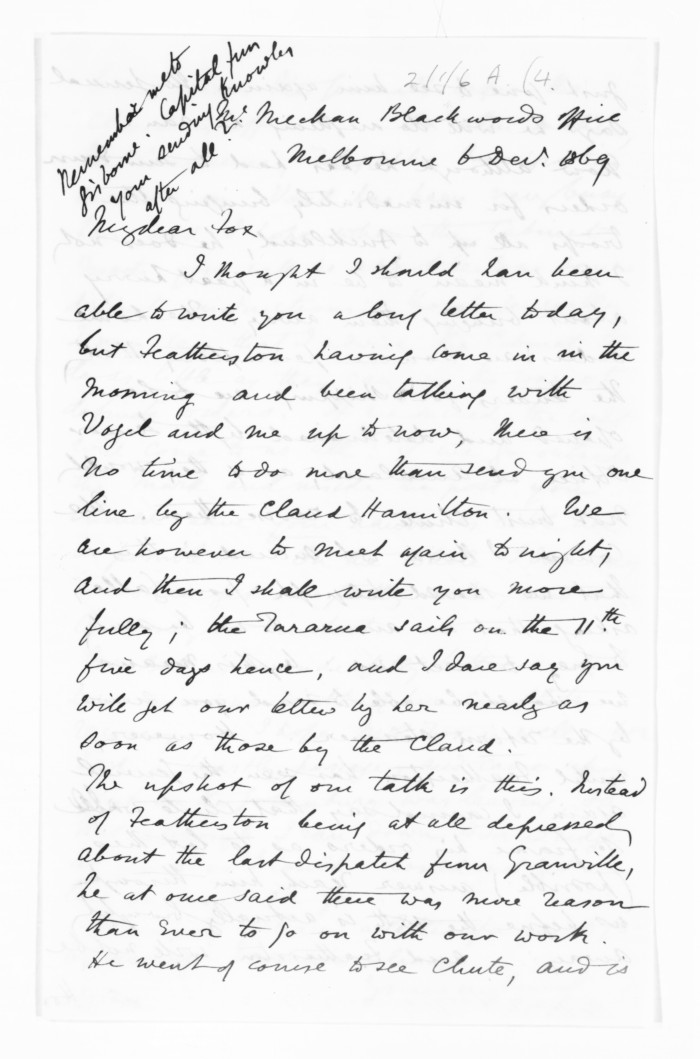 Remember me to
Gisborne. Capital fun
your sending Knowles
after all!
2/1/6 A (4.
McMeckan Blackwoods Office
Melbourne 6 Decr. 1869
My dear Fox
I thought I should have been
able to write you a long letter today,
but Featherston having come in in the
morning and been talking with
Vogel and me up to now, there is
no time to do more than send you one
line by the Claud Hamilton. We
are however to meet again tonight,
and then I shall write you more
fully; the Tararua sails on the 11th.
five days hence, and I dare say you
will get our letters by her nearly as
soon as those by the Claud.
The upshot of our talk is this. Instead
of Featherston being at all depressed
about the last dispatch from Granville,
he at once said there was more reason
than ever to go on with our work.
He went of course to see Chute, and is